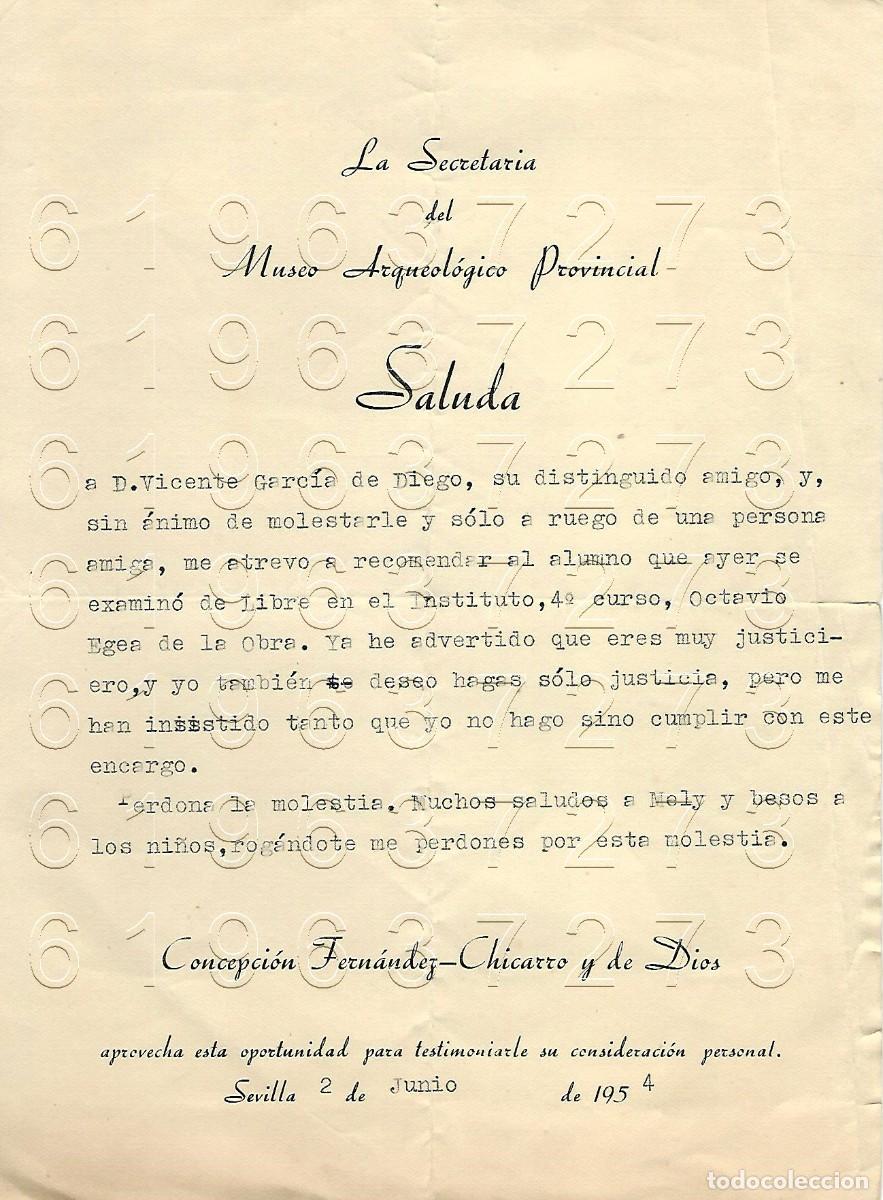 La Secretaria
del
Museo Arqueológico Provincial
Saluda
a D.Vicente García de Diego, su distinguido amigo, y,
sin ánimo de molestarle y sólo a ruego de una persona
amiga, me atrevo a recomendar al alumno que ayer se
examinó de Libre en el Instituto,4º curso, Octavio
Egea de la Obra. Ya he advertido que eres muy justici-
ero,y yo también te deseo hagas sólo justicia, pero me
han insistido tanto que yo no hago sino cumplir con este
encargo.
Perdona la molestia. Muchos saludos a Mely y besos a
los niños,rogándote me perdones por esta molestia.
Concepción Fernández-Chicarro y de Dios
aprovecha esta oportunidad para testimoniarle su consideración personal.
Sevilla 2 de Junio de 1954
619637273
619637273
619637273
619637273
619637273
619637273
619637273
todocoleccion